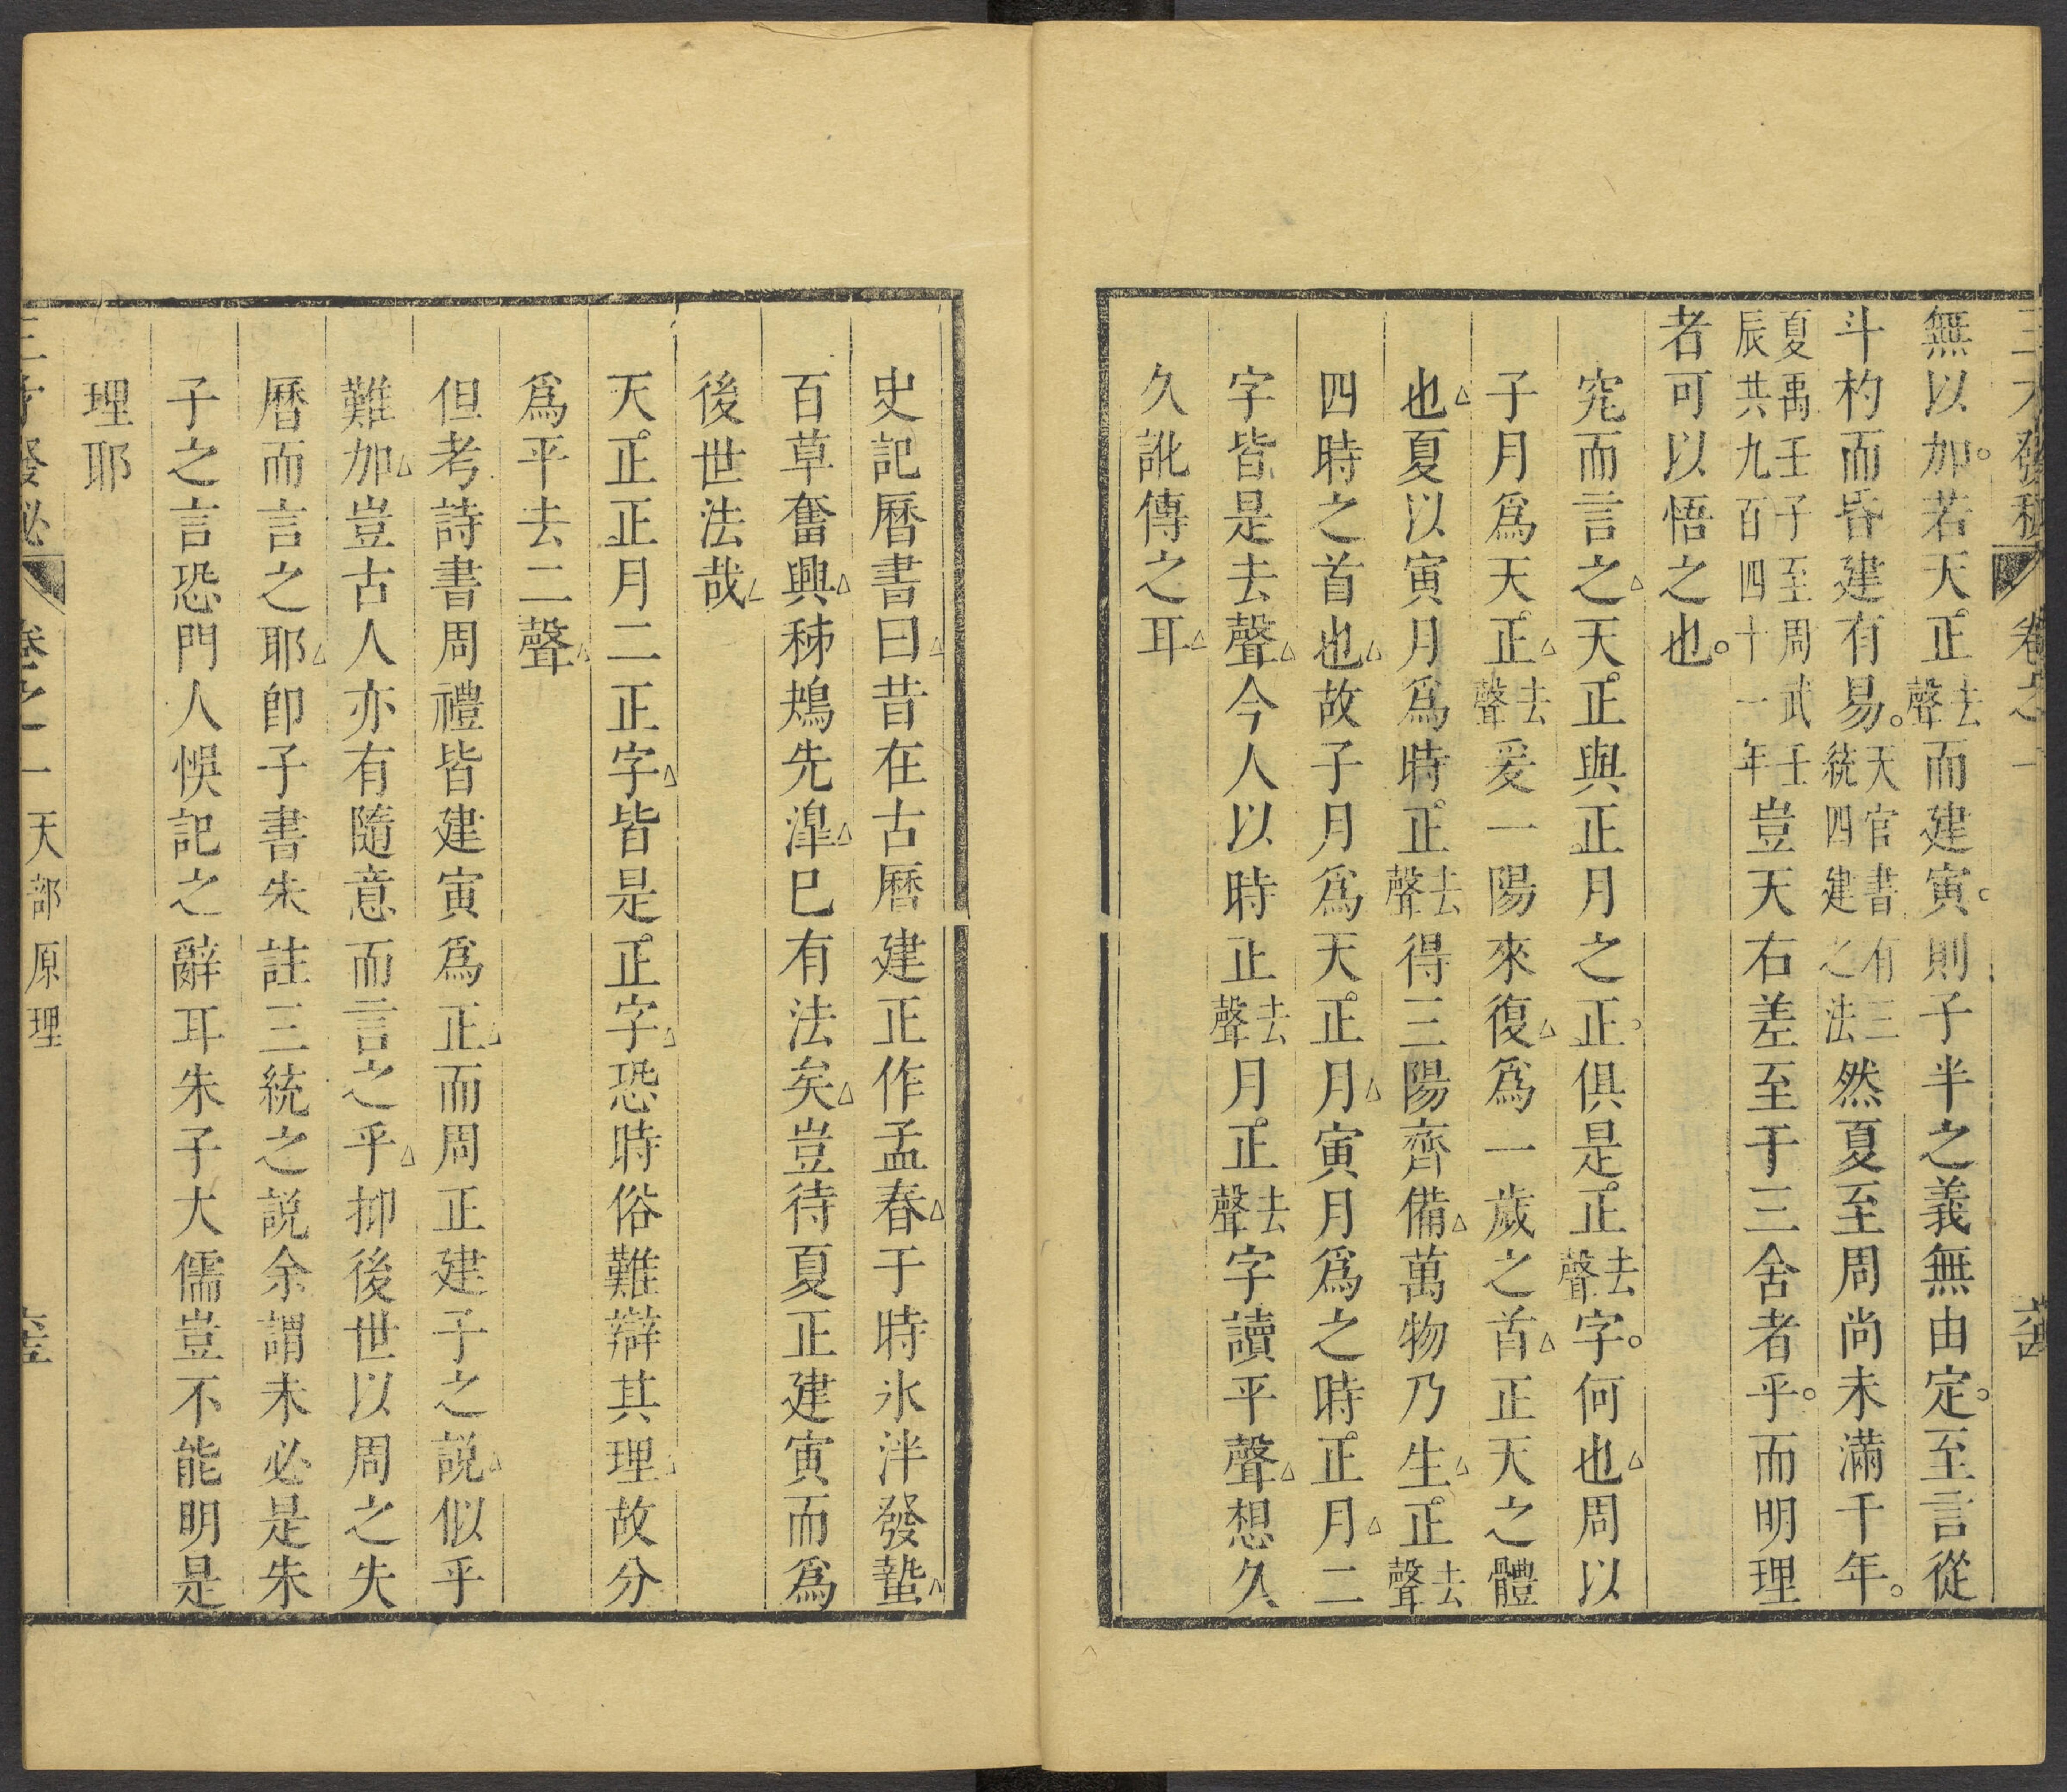 三才發秘 卷之一
無以加。若天正去聲而建寅。則子半之義無由定。至言從
斗杓而昏建有易。天官書有三統四建之法然夏至周尚未滿千年。
夏禹壬子至周武壬辰共九百四十一年豈天右差至于三舍者乎。而明理
者可以悟之也。
究而言之天正與正月之正俱是正去聲字。何也周以
子月爲天正去聲爰一陽來復爲一歲之首正天之體
也夏以寅月爲時正去聲得三陽齊備萬物乃生正去聲
四時之首也故子月爲天正月寅月爲之時正月二
字皆是去聲今人以時正去聲月正去聲字讀平聲想久
久訛傳之耳
史記曆書曰昔在古曆建正作孟春于時氷泮發蟄
百草奮興秭鳺先滜巳有法矣豈待夏正建寅而爲
後世法哉
天正正月二正字皆是正字恐時俗難辯其理故分
爲平去二聲
但考詩書周禮皆建寅爲正而周正建子之説似乎
難加豈古人亦有隨意而言之乎抑後世以周之失
曆而言之耶卽子書朱註三統之説余謂未必是朱
子之言恐門人悞記之辭耳朱子大儒豈不能明是
理耶
三才發秘 卷之一 天部 原理